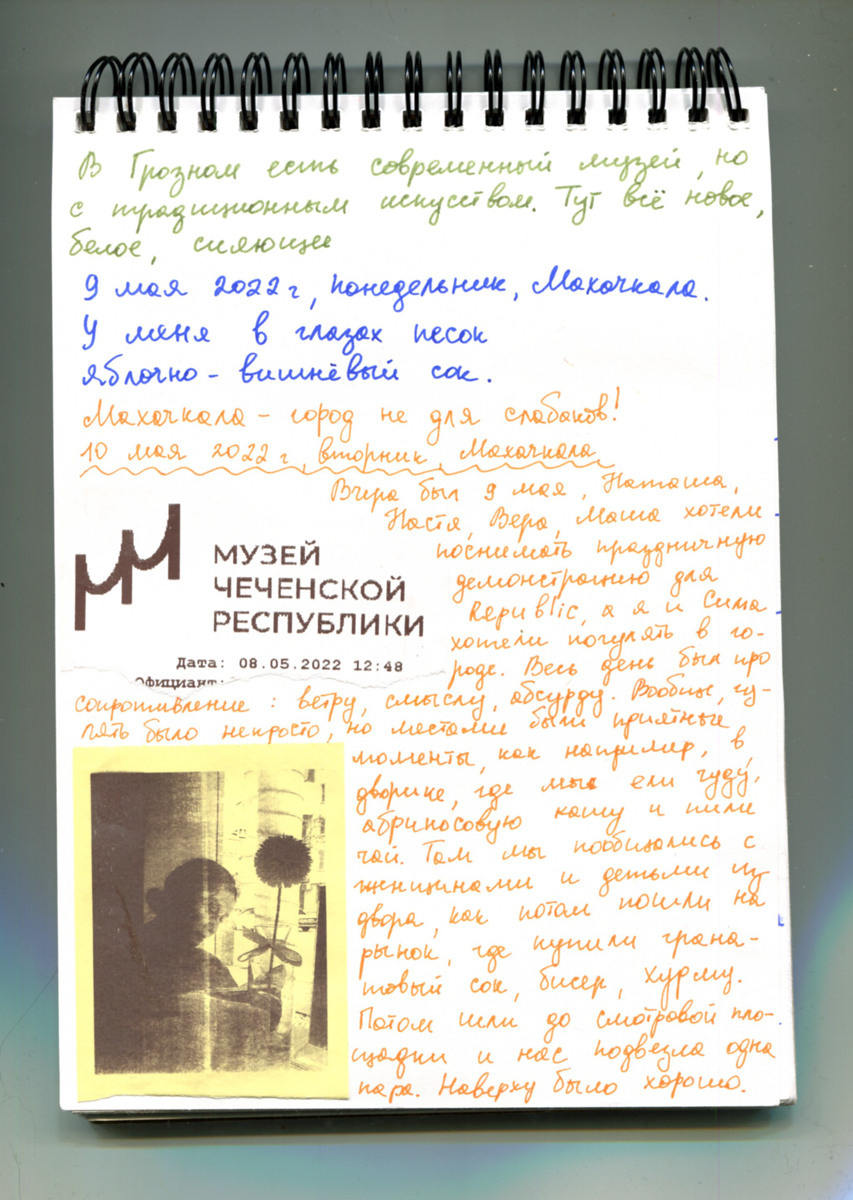 В Грозном есть современный музей, но
с традиционным искусством. Тут всё новое,
белое, сияющее
9 мая 2022 г, понедельник, Махачкала.
У меня в глазах песок
Яблочно - вишнёвый сок.
Махачкала - город не для слабаков!
10 мая 2022 г, вторник, Махачкала
Вчера был 9 мая, Наташа,
Настя, Вера, Маша хотели
поснимать праздничную
демонстрацию для
Republic, а я и Сима
хотели погулять в го-
роде. Весь день был про
МУЗЕЙ
ЧЕЧЕНСКОЙ
РЕСПУБЛИКИ
Дата: 08.05.2022 12:48
Официант:
сопротивление: ветру, смыслу, абсурду. Вообще, гу-
лять было непросто, но местами были приятные
моменты, как например, в
дворике, где мы ели чуду,
абрикосовую кашу и пили
чай. Там мы пообщались с
женщинами и детьми из
двора, как потом пошли на
рынок, где купили грана-
товый сок, бисер, хурму.
Потом шли до смотровой пло-
щадки и нас подвезла одна
пара. Наверху было хорошо.